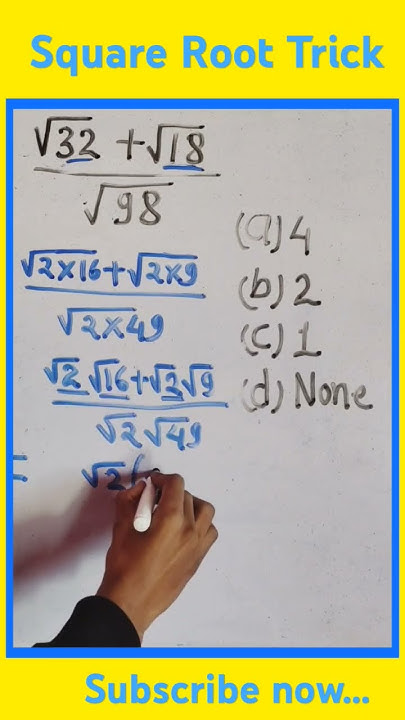 Square Root Trick
√32 + √18
√98
(a) 4
(b) 2
(c) 1
(d) None
√2×16 + √2×9
√2×49
√2 √16 + √2 √9
√2 √49
= √2 (
Subscribe now...